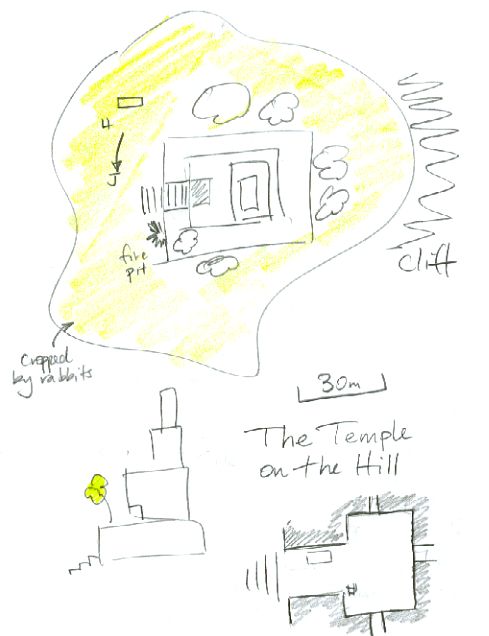 4
J
fire
pit
Cliff
Cropped
by rabbits
30m
The Temple
on the Hill